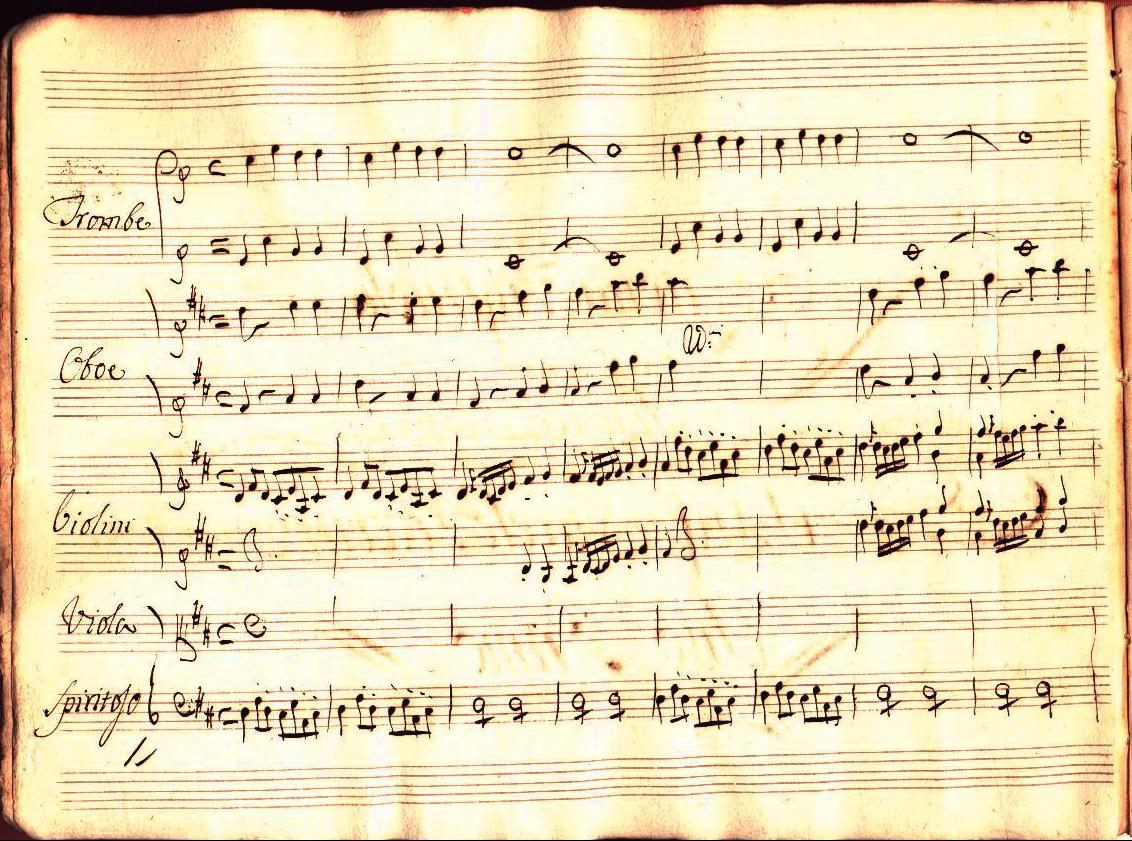 Trombe
Oboe
Violini
Viola
Spiritoso